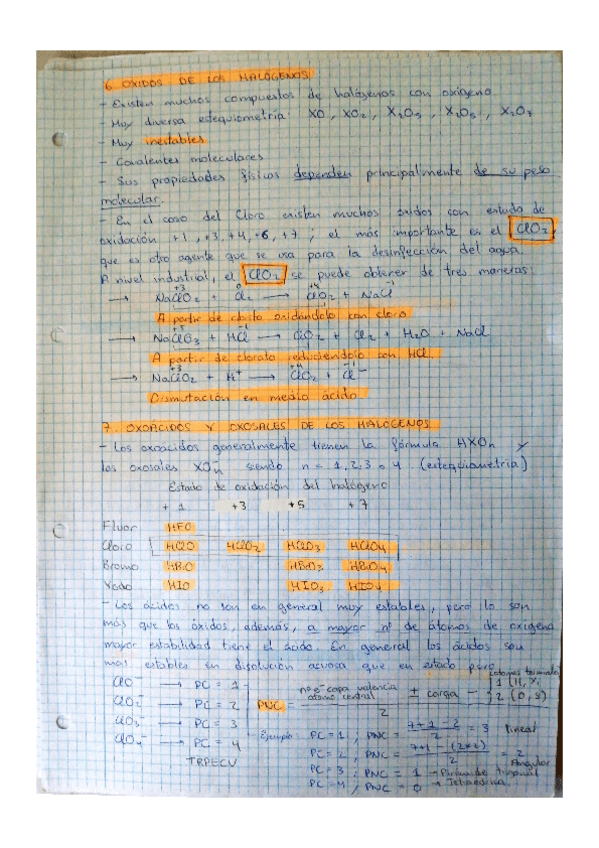 6. OXIDOS DE LOS HALÓGENOS
- Existen muchos compuestos de halógenos con oxígeno.
- Muy diversa estequiometría: XO, XO2, X2O3, X2O5, X2O7
- Muy inestables
- Covalentes moleculares
- Sus propiedades físicas dependen principalmente de su peso
molecular.
- En el caso del Cloro existen muchos óxidos con estado de
oxidación +1, +3, +4, +6, +7; el más importante es el ClO2,
que es otro agente que se usa para la desinfección del agua.
A nivel industrial, el ClO2 se puede obtener de tres maneras:
+3 0 +4 -1
→ NaClO2 + Cl2 → ClO2 + NaCl
A partir de clorito oxidándolo con cloro
+5 -1
→ NaClO3 + HCl → ClO2 + Cl2 + H2O + NaCl
A partir de clorato reduciéndolo con HCl
+3 +4 -1
→ NaClO2 + H+ → ClO2 + Cl-
Dismutación en medio ácido
7. OXOÁCIDOS Y OXOSALES DE LOS HALOGENOS
- Los oxoácidos generalmente tienen la fórmula HXOn y
los oxosales XOn- siendo n = 1, 2, 3 o 4 (estequiometría)
Estado de oxidación del halógeno
+1 +3 +5 +7
Fluor HFO
Cloro HClO HClO2 HClO3 HClO4
Bromo HBrO HBrO3 HBrO4
Yodo HIO HIO3 HIO4
- Los ácidos no son en general muy estables, pero lo son
más que los óxidos, además, a mayor nº de átomos de oxígeno
mayor estabilidad tiene el ácido. En general los ácidos son
más estables en disolución acuosa que en estado puro
ClO- → PC = 1
ClO2- → PC = 2
ClO3- → PC = 3
ClO4- → PC = 4
TRPECV
PNC = nº e- capa valencia átomo central ± carga - 1 (H, X, 2 (O, S) / 2
Ejemplo: PC = 1; PNC = 7+1-2 / 2 = 3 Lineal
PC = 2; PNC = 7+1-(2×2) / 2 = 2 Angular
PC = 3; PNC = 1 → Pirámide trigonal
PC = 4; PNC = 0 → Tetraédrica